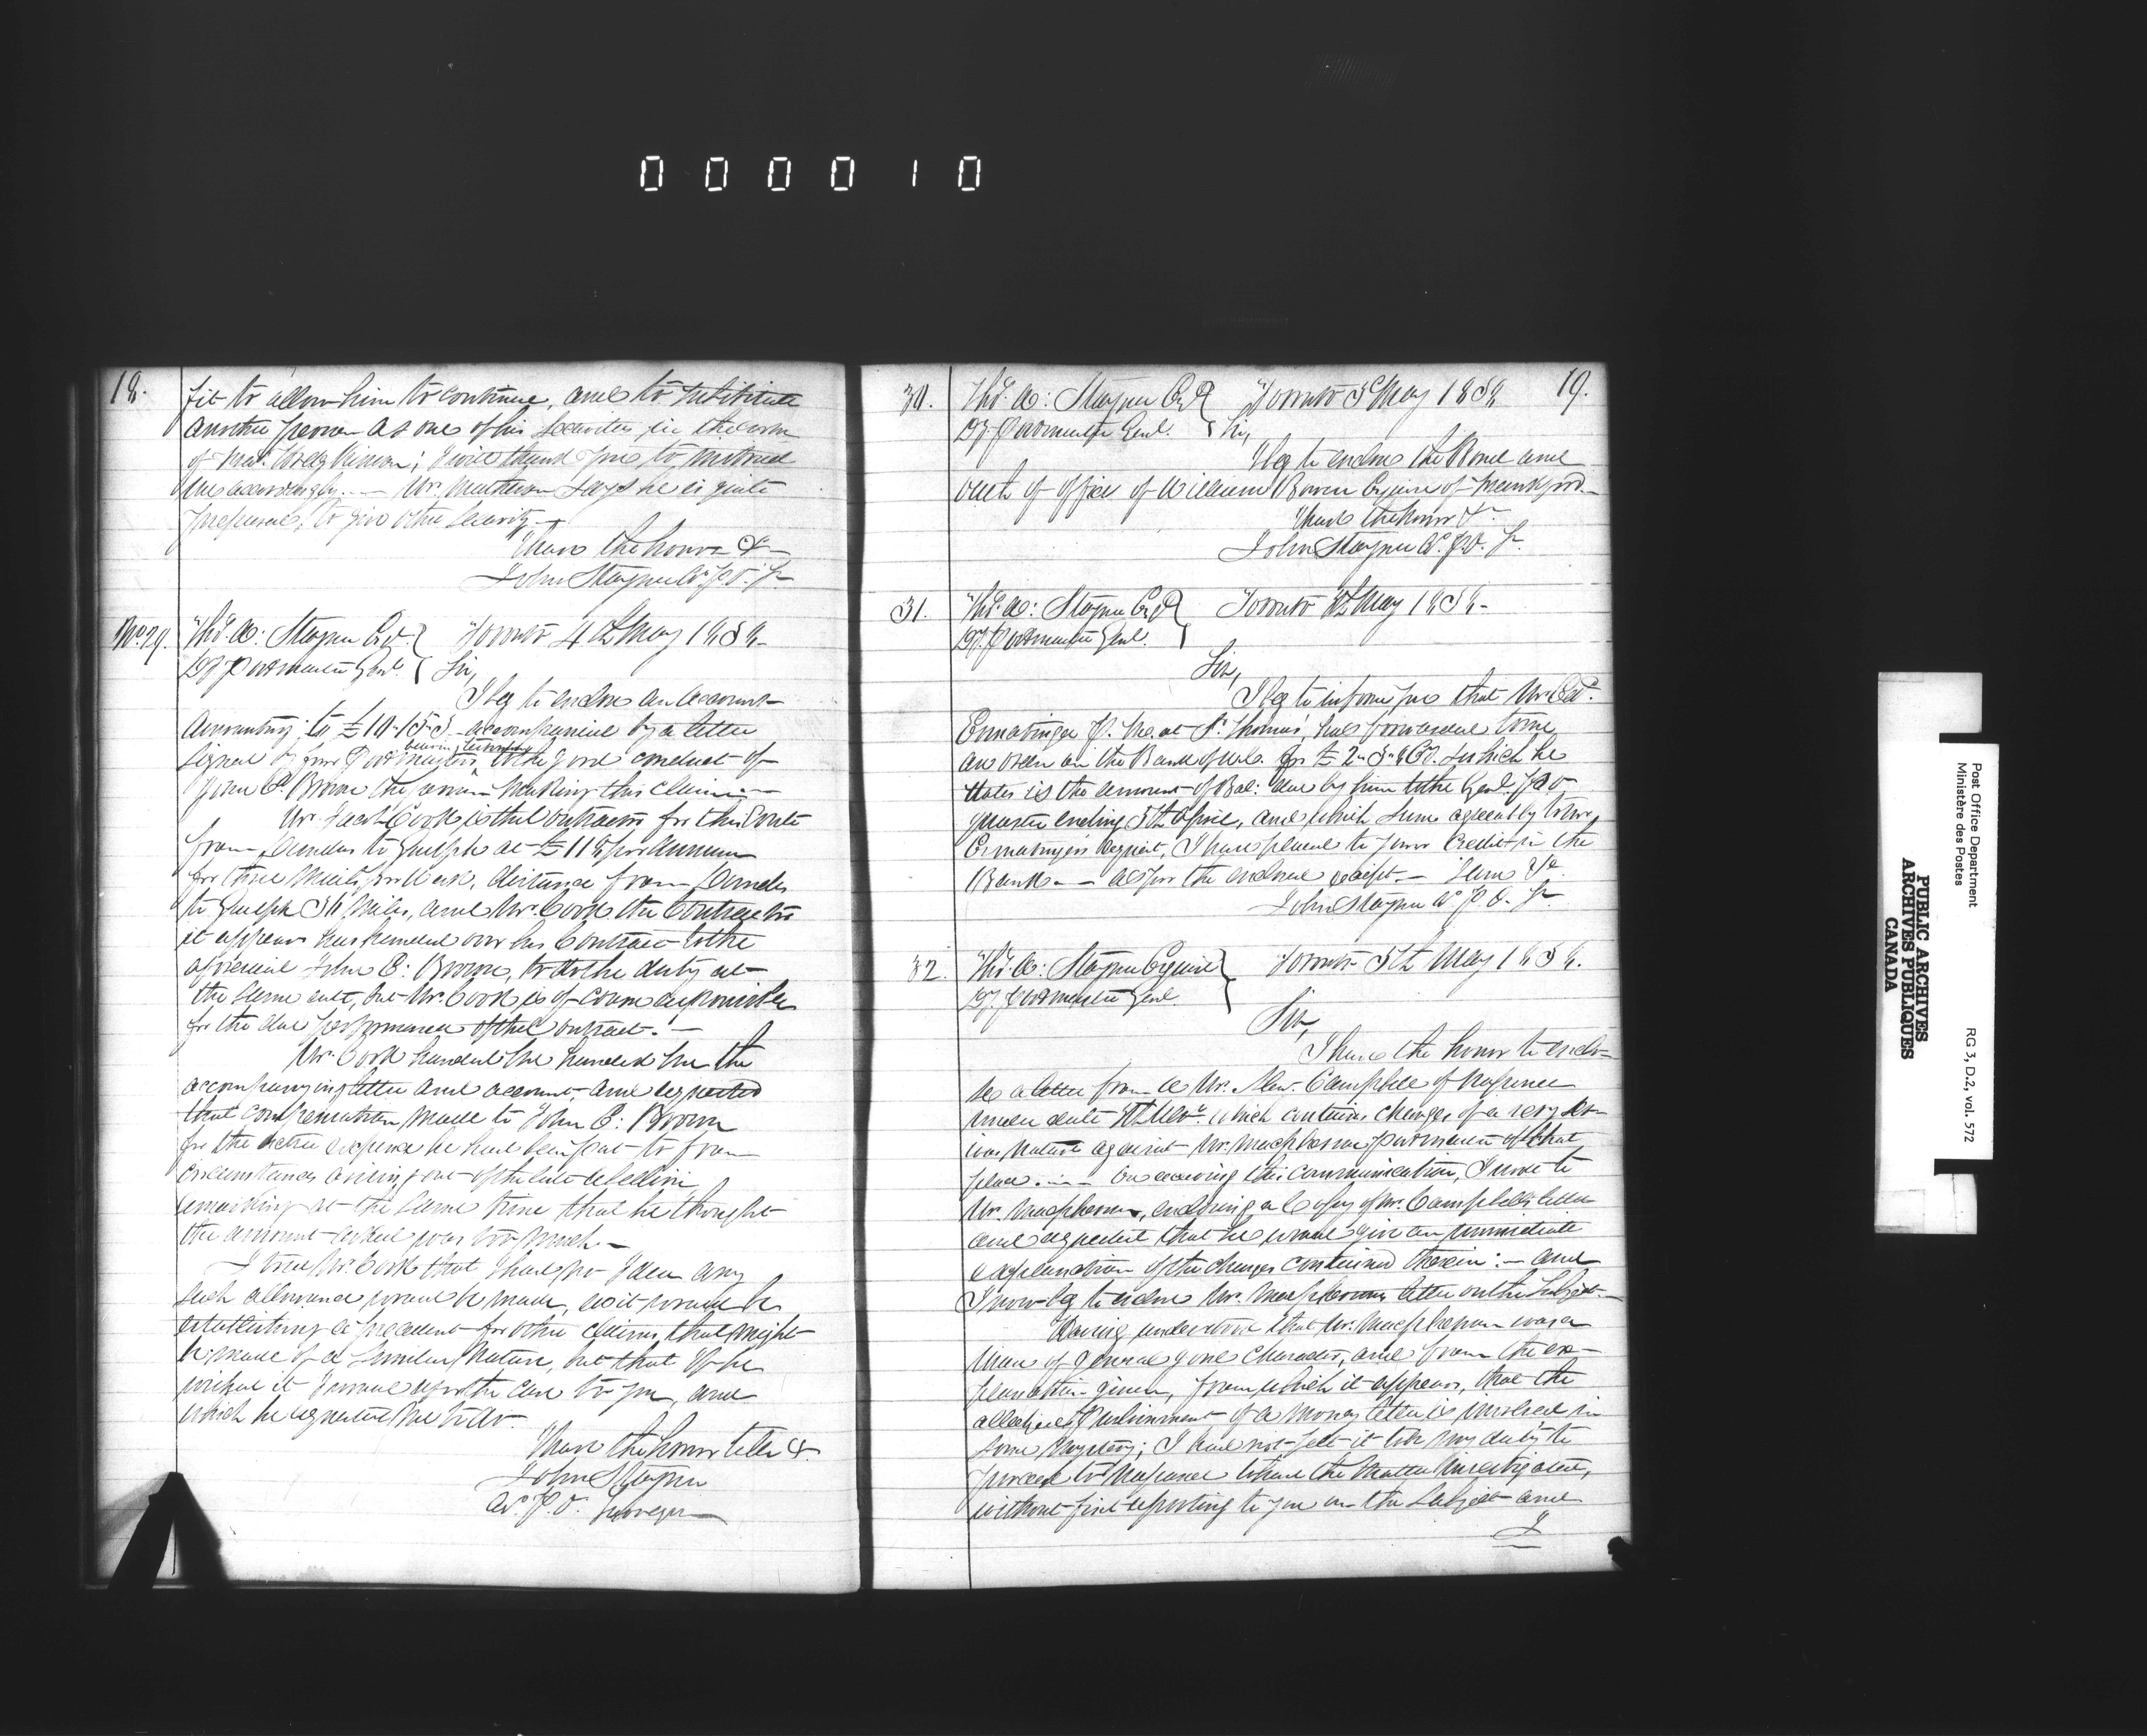 000010
18.
fit to allow him to continue, and to substitute
another person as one of his Securities in the room
of ; I will thank you to instruct
me accordingly. — Mr. Matheson says he is quite
prepared, to give other Security. —
I have the honor &
John Stayner Ag. P.O. Sr.
No. 29. Thos. A: Stayner Esqr Toronto 4th May 1838.
Dy Postmaster Genl. Sir,
I beg to enclose an account
amounting to £10.15.3 accompanied by a letter
signed by four Postmasters, bearing testimony to the good conduct of
John E. Brown the person making this Claim. —
Mr. Jacob Cook is the Contractor for this Route
from Dundas to Guelph at £118 per Annum
for three Mails per Week, distance from Dundas
to Guelph Miles, and Mr. Cook the Contractor
it appears has handed over his Contract to the
aforesaid John E: Brown, to do the duty at
the same rate, but Mr. Cook is of course responsible
for the due performance of the Contract. —
Mr. Cook handed me handed me the
accompanying letter and account, and requested
that compensation made to John E: Brown
for the extra expense he had been put to from
circumstances arising out of the late rebellion
remarking at the same time that he thought
the amount asked was too much. —
I told Mr. Cook that I had no Idea any
such allowance would be made, as it would be
establishing a precedent for other claims that might
be made of a similar Nature, but that if he
wished it I would report the case to you, and
which he requested me to do.
I have the honor to be &
John Stayner
Ag. P.O. Surveyor
19.
30. Thos. A: Stayner Esqr Toronto 5th May 1838
Dy. Postmaster Genl. Sir,
I beg to enclose the Bond and
oath of office of William Bowen Esquire of Frankford
I have the honor &
John Stayner Ag. P.O. Sr.
31. Thos. A: Stayner Esqr Toronto May 1838.
Dy. Postmaster Genl.
Sir,
I beg to inform you that Mr. Ed.
Ermatinger P. M. at St. Thomas, has forwarded to me
an order on the Bank of U.C. for which he
states is the amount of Bal: due by him to the Genl. P.O.
quarter ending 5th April, and which sum agreeably to Mr.
Ermatinger's request, I have placed to your Credit in the
Bank — as per the enclosed receipt. — I have &
John Stayner Ag. P.O. Sr.
32. Thos. A: Stayner Esquire Toronto 5th May 1838.
Dy. Postmaster Genl.
Sir,
I have the honor to enclo-
se a letter from a Mr. Alexr. Campbell of Napanee
under date which contains charges of a very ser-
ious nature against Mr. Macpherson, postmaster of that
place. — On receiving this communication, I wrote to
Mr. Macpherson, enclosing a Copy of Mr. Campbell's letter
and requested that he would give an immediate
explanation of the charges contained therein: — and
I now beg to enclose Mr. Macpherson's letter on the Subject. —
Having understood that Mr. Macpherson was a
Man of general good Character, and from the ex-
planation given, from which it appears, that the
alleged of a money letter is involved in
some mystery; I had not felt it to be my duty to
proceed to Napanee to have the matter investigated,
without first reporting to you on the Subject and
I
Post Office Department
Ministère des Postes
RG 3, D.2, vol. 572
PUBLIC ARCHIVES
ARCHIVES PUBLIQUES
CANADA